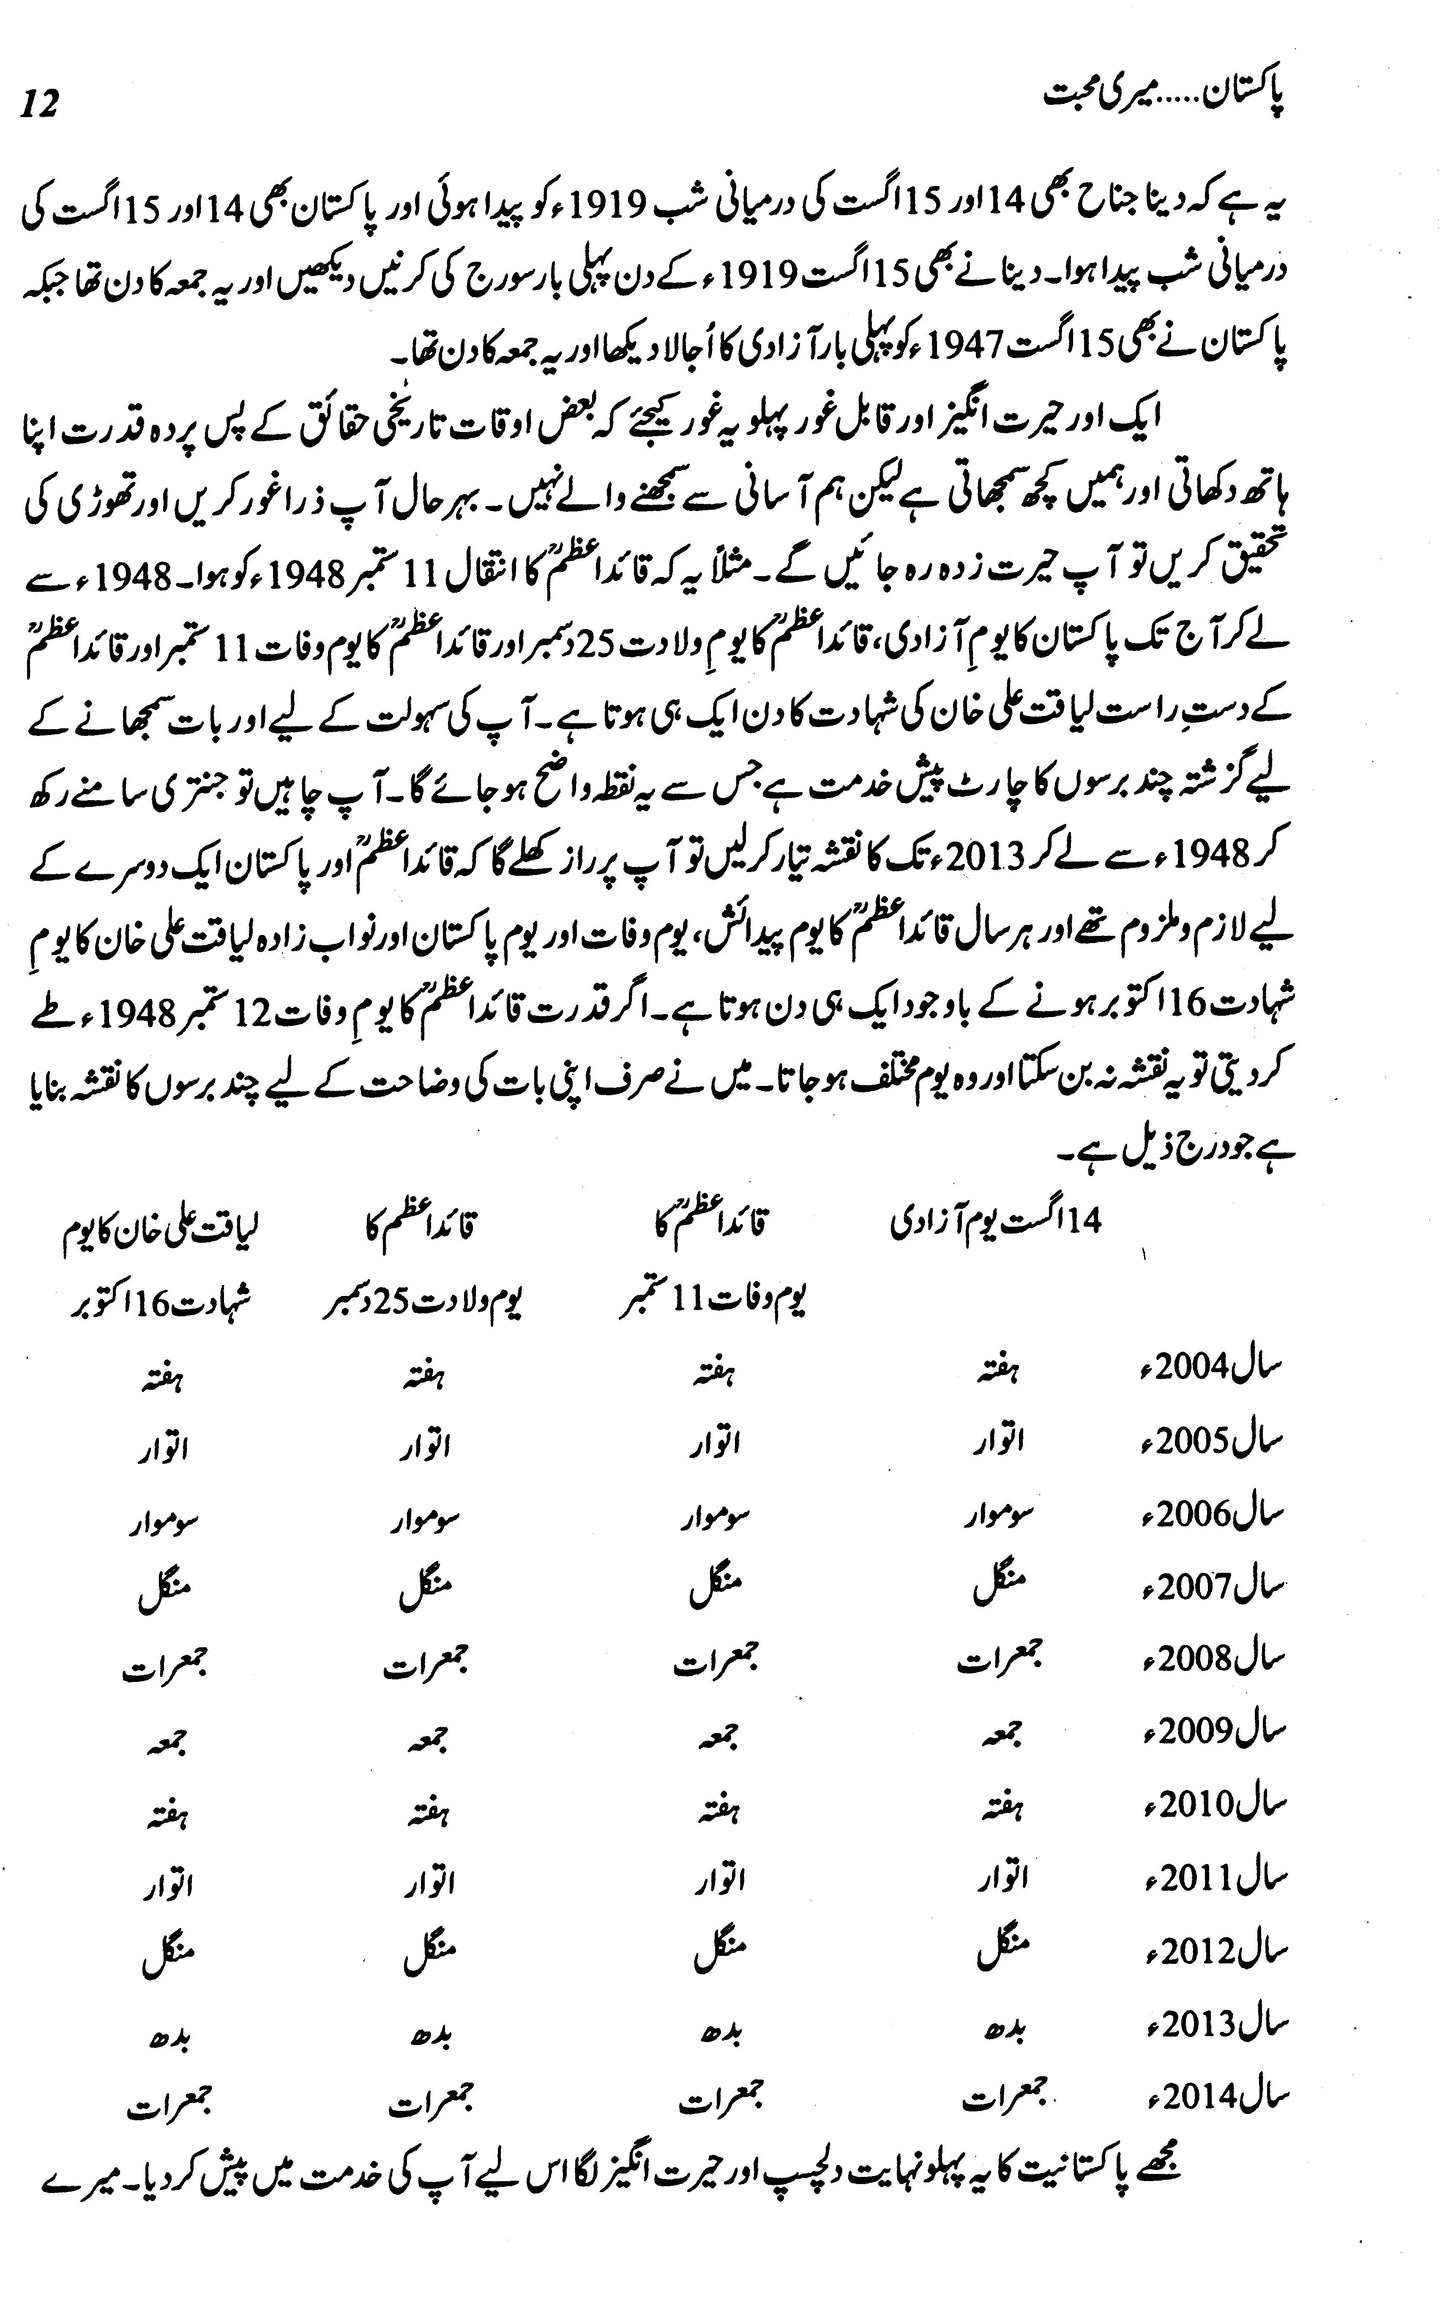 پاکستان.....میری محبت 12
یہ ہے کہ دینا جناح بھی 14 اور 15 اگست کی درمیانی شب 1919ء کو پیدا ہوئی اور پاکستان بھی 14 اور 15 اگست کی
درمیانی شب پیدا ہوا۔ دینا نے بھی 15 اگست 1919ء کے دن پہلی بار سورج کی کرنیں دیکھیں اور یہ جمعہ کا دن تھا جبکہ
پاکستان نے بھی 15 اگست 1947ء کو پہلی بار آزادی کا اُجالا دیکھا اور یہ جمعہ کا دن تھا۔
ایک اور حیرت انگیز اور قابل غور پہلو یہ غور کیجئے کہ بعض اوقات تاریخی حقائق کے پس پردہ قدرت اپنا
ہاتھ دکھاتی اور ہمیں کچھ سمجھاتی ہے لیکن ہم آسانی سے سمجھنے والے نہیں۔ بہرحال آپ ذرا غور کریں اور تھوڑی کی
تحقیق کریں تو آپ حیرت زدہ رہ جائیں گے۔ مثلاً یہ کہ قائداعظمؒ کا انتقال 11 ستمبر 1948ء کو ہوا۔ 1948ء سے
لے کر آج تک پاکستان کا یومِ آزادی، قائداعظمؒ کا یومِ ولادت 25 دسمبر اور قائداعظمؒ کا یوم وفات 11 ستمبر اور قائداعظمؒ
کے دستِ راست لیاقت علی خان کی شہادت کا دن ایک ہی ہوتا ہے۔ آپ کی سہولت کے لیے اور بات سمجھانے کے
لیے گزشتہ چند برسوں کا چارٹ پیش خدمت ہے جس سے یہ نقطہ واضح ہو جائے گا۔ آپ چاہیں تو جنتری سامنے رکھ
کر 1948ء سے لے کر 2013ء تک کا نقشہ تیار کرلیں تو آپ پر راز کھلے گا کہ قائداعظمؒ اور پاکستان ایک دوسرے کے
لیے لازم و ملزوم تھے اور ہر سال قائداعظمؒ کا یوم پیدائش، یوم وفات اور یوم پاکستان اور نواب زادہ لیاقت علی خان کا یومِ
شہادت 16 اکتوبر ہونے کے باوجود ایک ہی دن ہوتا ہے۔ اگر قدرت قائداعظمؒ کا یومِ وفات 12 ستمبر 1948ء طے
کر دیتی تو یہ نقشہ نہ بن سکتا اور وہ یوم مختلف ہو جاتا۔ میں نے صرف اپنی بات کی وضاحت کے لیے چند برسوں کا نقشہ بنایا
ہے جو درج ذیل ہے۔
14 اگست یوم آزادی قائداعظمؒ کا قائداعظم کا لیاقت علی خان کا یوم
یوم وفات 11 ستمبر یوم ولادت 25 دسمبر شہادت 16 اکتوبر
سال 2004ء ہفتہ ہفتہ ہفتہ ہفتہ
سال 2005ء اتوار اتوار اتوار اتوار
سال 2006ء سوموار سوموار سوموار سوموار
سال 2007ء منگل منگل منگل منگل
سال 2008ء جمعرات جمعرات جمعرات جمعرات
سال 2009ء جمعہ جمعہ جمعہ جمعہ
سال 2010ء ہفتہ ہفتہ ہفتہ ہفتہ
سال 2011ء اتوار اتوار اتوار اتوار
سال 2012ء منگل منگل منگل منگل
سال 2013ء بدھ بدھ بدھ بدھ
سال 2014ء جمعرات جمعرات جمعرات جمعرات
مجھے پاکستانیت کا یہ پہلو نہایت دلچسپ اور حیرت انگیز لگا اس لیے آپ کی خدمت میں پیش کر دیا۔ میرے